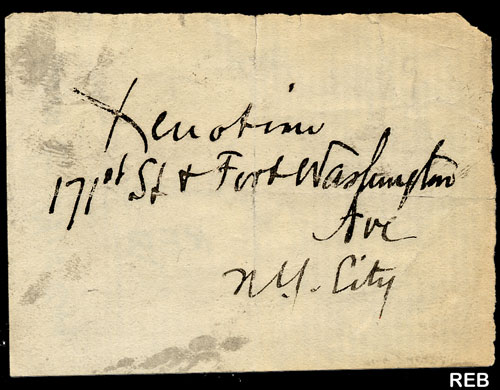 Xenotime
171st St & Fort Washington
Ave
N.Y. City
REB